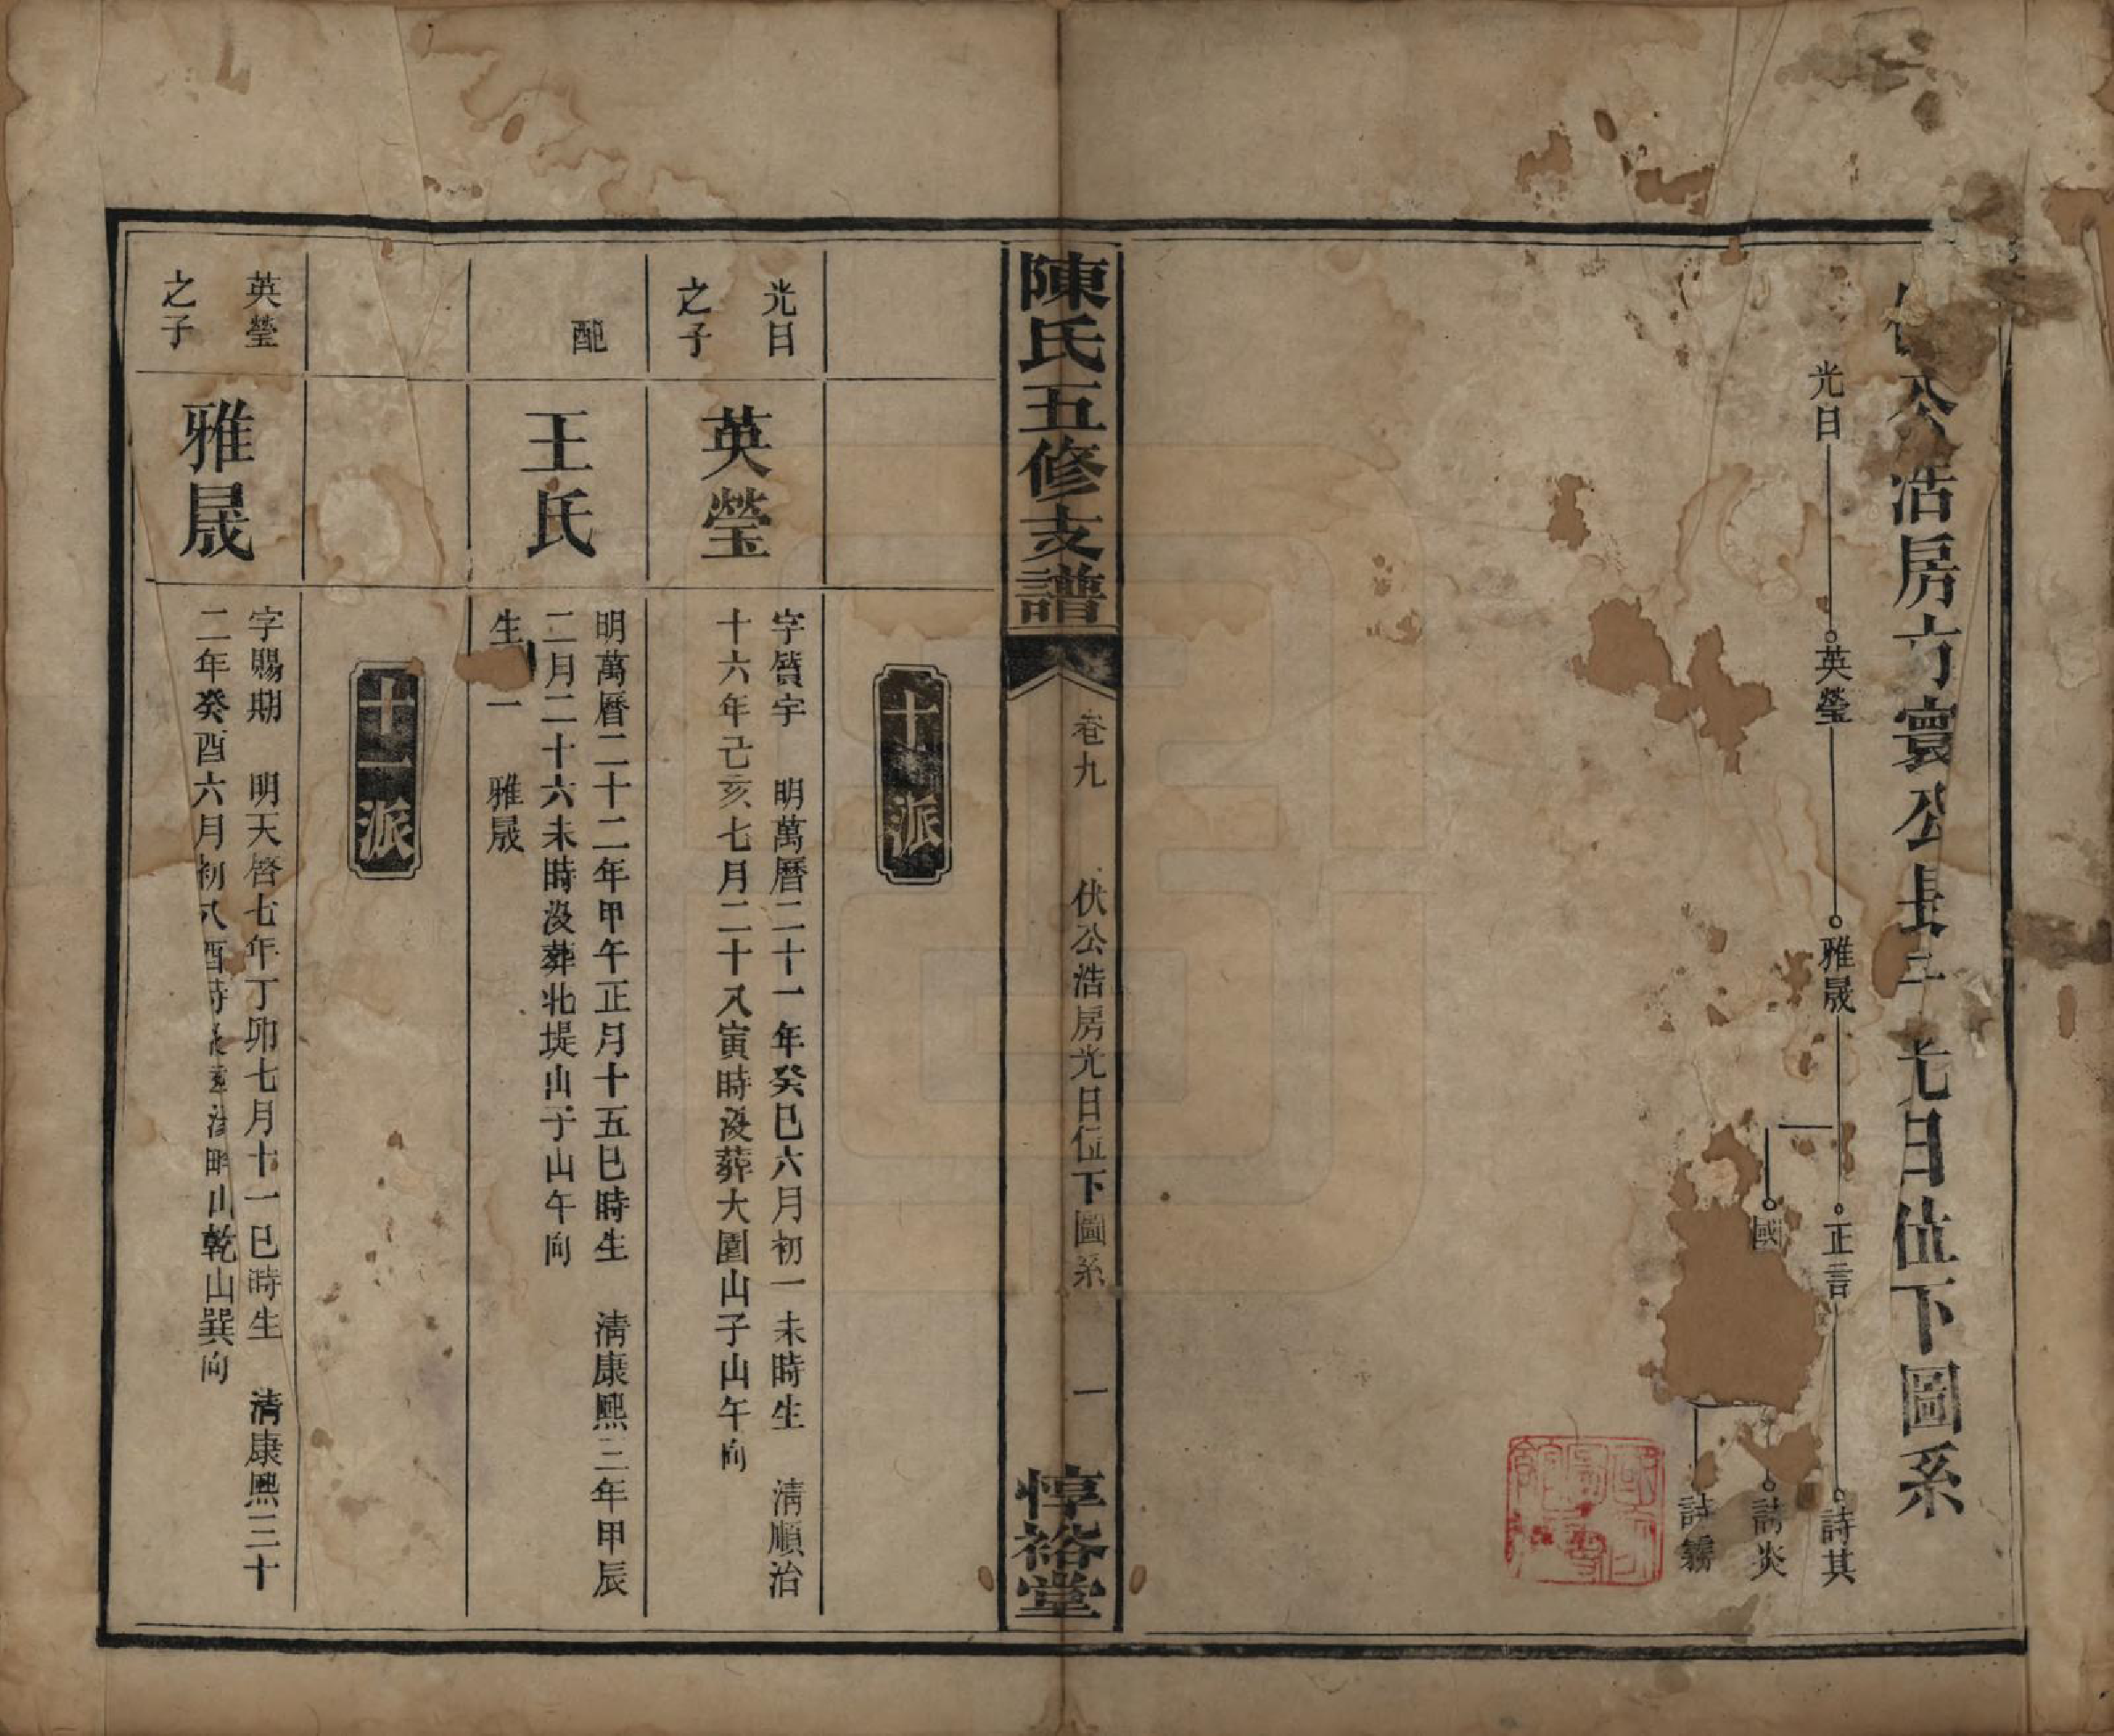 公浩房方寰公長子光日位下圖系
光日 英瑩 雅晟 正言 詩其
國 詩炎
詩霧
陳氏五修支譜
卷九 伏公浩房光日位下圖系 一
惇裕堂
十派
光日之子
英瑩
字贊宇 明萬曆二十一年癸巳六月初一未時生 清順治
十六年己亥七月二十八寅時沒葬大園山子山午向
配
王氏
明萬曆二十二年甲午正月十五巳時生 清康熙三年甲辰
二月二十六未時沒葬北堤山子山午向
生 一 雅晟
十一派
英瑩之子
雅晟
字賜期 明天啓七年丁卯七月十一巳時生 清康熙三十
二年癸酉六月初八酉時 畔山乾山巽向